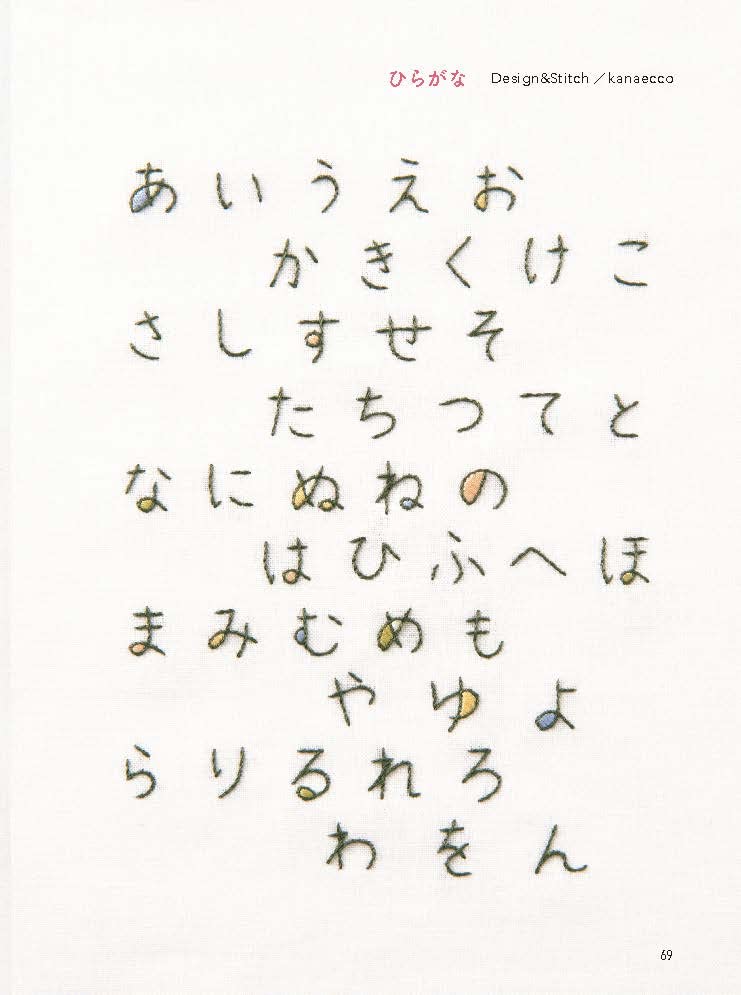 ひらがな Design&Stitch／kanaecco
あいうえお
かきくけこ
さしすせそ
たちつてと
なにぬねの
はひふへほ
まみむめも
やゆよ
らりるれろ
わをん
69